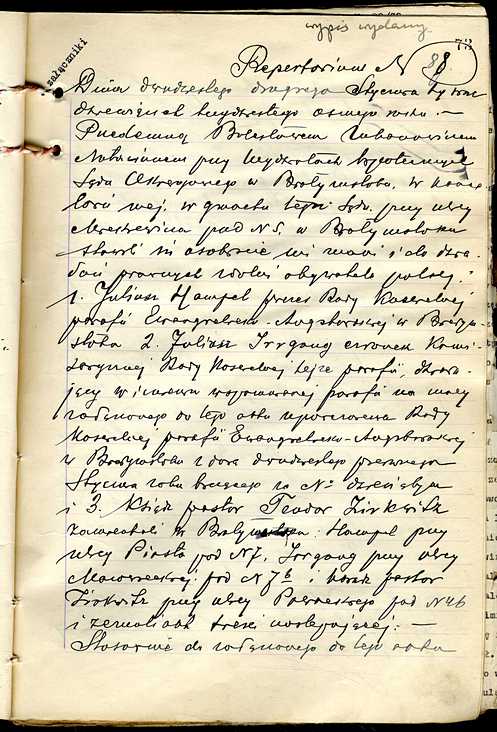 wypis wydany.
załączniki
Repertorium № 88.
Dnia dwudziestego drugiego Stycznia tysiąc
dziewięćset trzydziestego ósmego roku. —
Przedemną Bolesławem Urbanowiczem
Notariuszem przy Wydziałach hypotecznych
Sądu Okręgowego w Białymstoku, w kance
larii mej, w gmachu tegoż Sądu, przy ulicy
Mickiewicza pod N 5. w Białymstoku
stawili się osobiście mi znani i do dzia
łań prawnych zdolni obywatele polscy:
1. Juliusz Hampel prezes Rady Kościelnej
parafii Ewangelicko-Augsburskiej w Białym
stoku 2. Juliusz Irrgang członek
Rady Kościelnej tejże parafii, działa
jący w imieniu wspomnianej parafii na mocy
załączonego do tego aktu upoważnienia Rady
Kościelnej parafii Ewangelicko-Augsburskiej
w Białymstoku z dnia dwudziestego pierwszego
Stycznia roku bieżącego za №
i 3. Ksiądz pastor Teodor Zirkwitz
zamieszkali w Białymstoku: Hampel przy
ulicy Piasta pod N 7, Irrgang przy ulicy
Mazowieckiej pod N 7 b i ksiądz pastor
Zirkwitz przy ulicy pod N 46
i zeznali akt treści następującej: —
Stosownie do załączonego do tego aktu